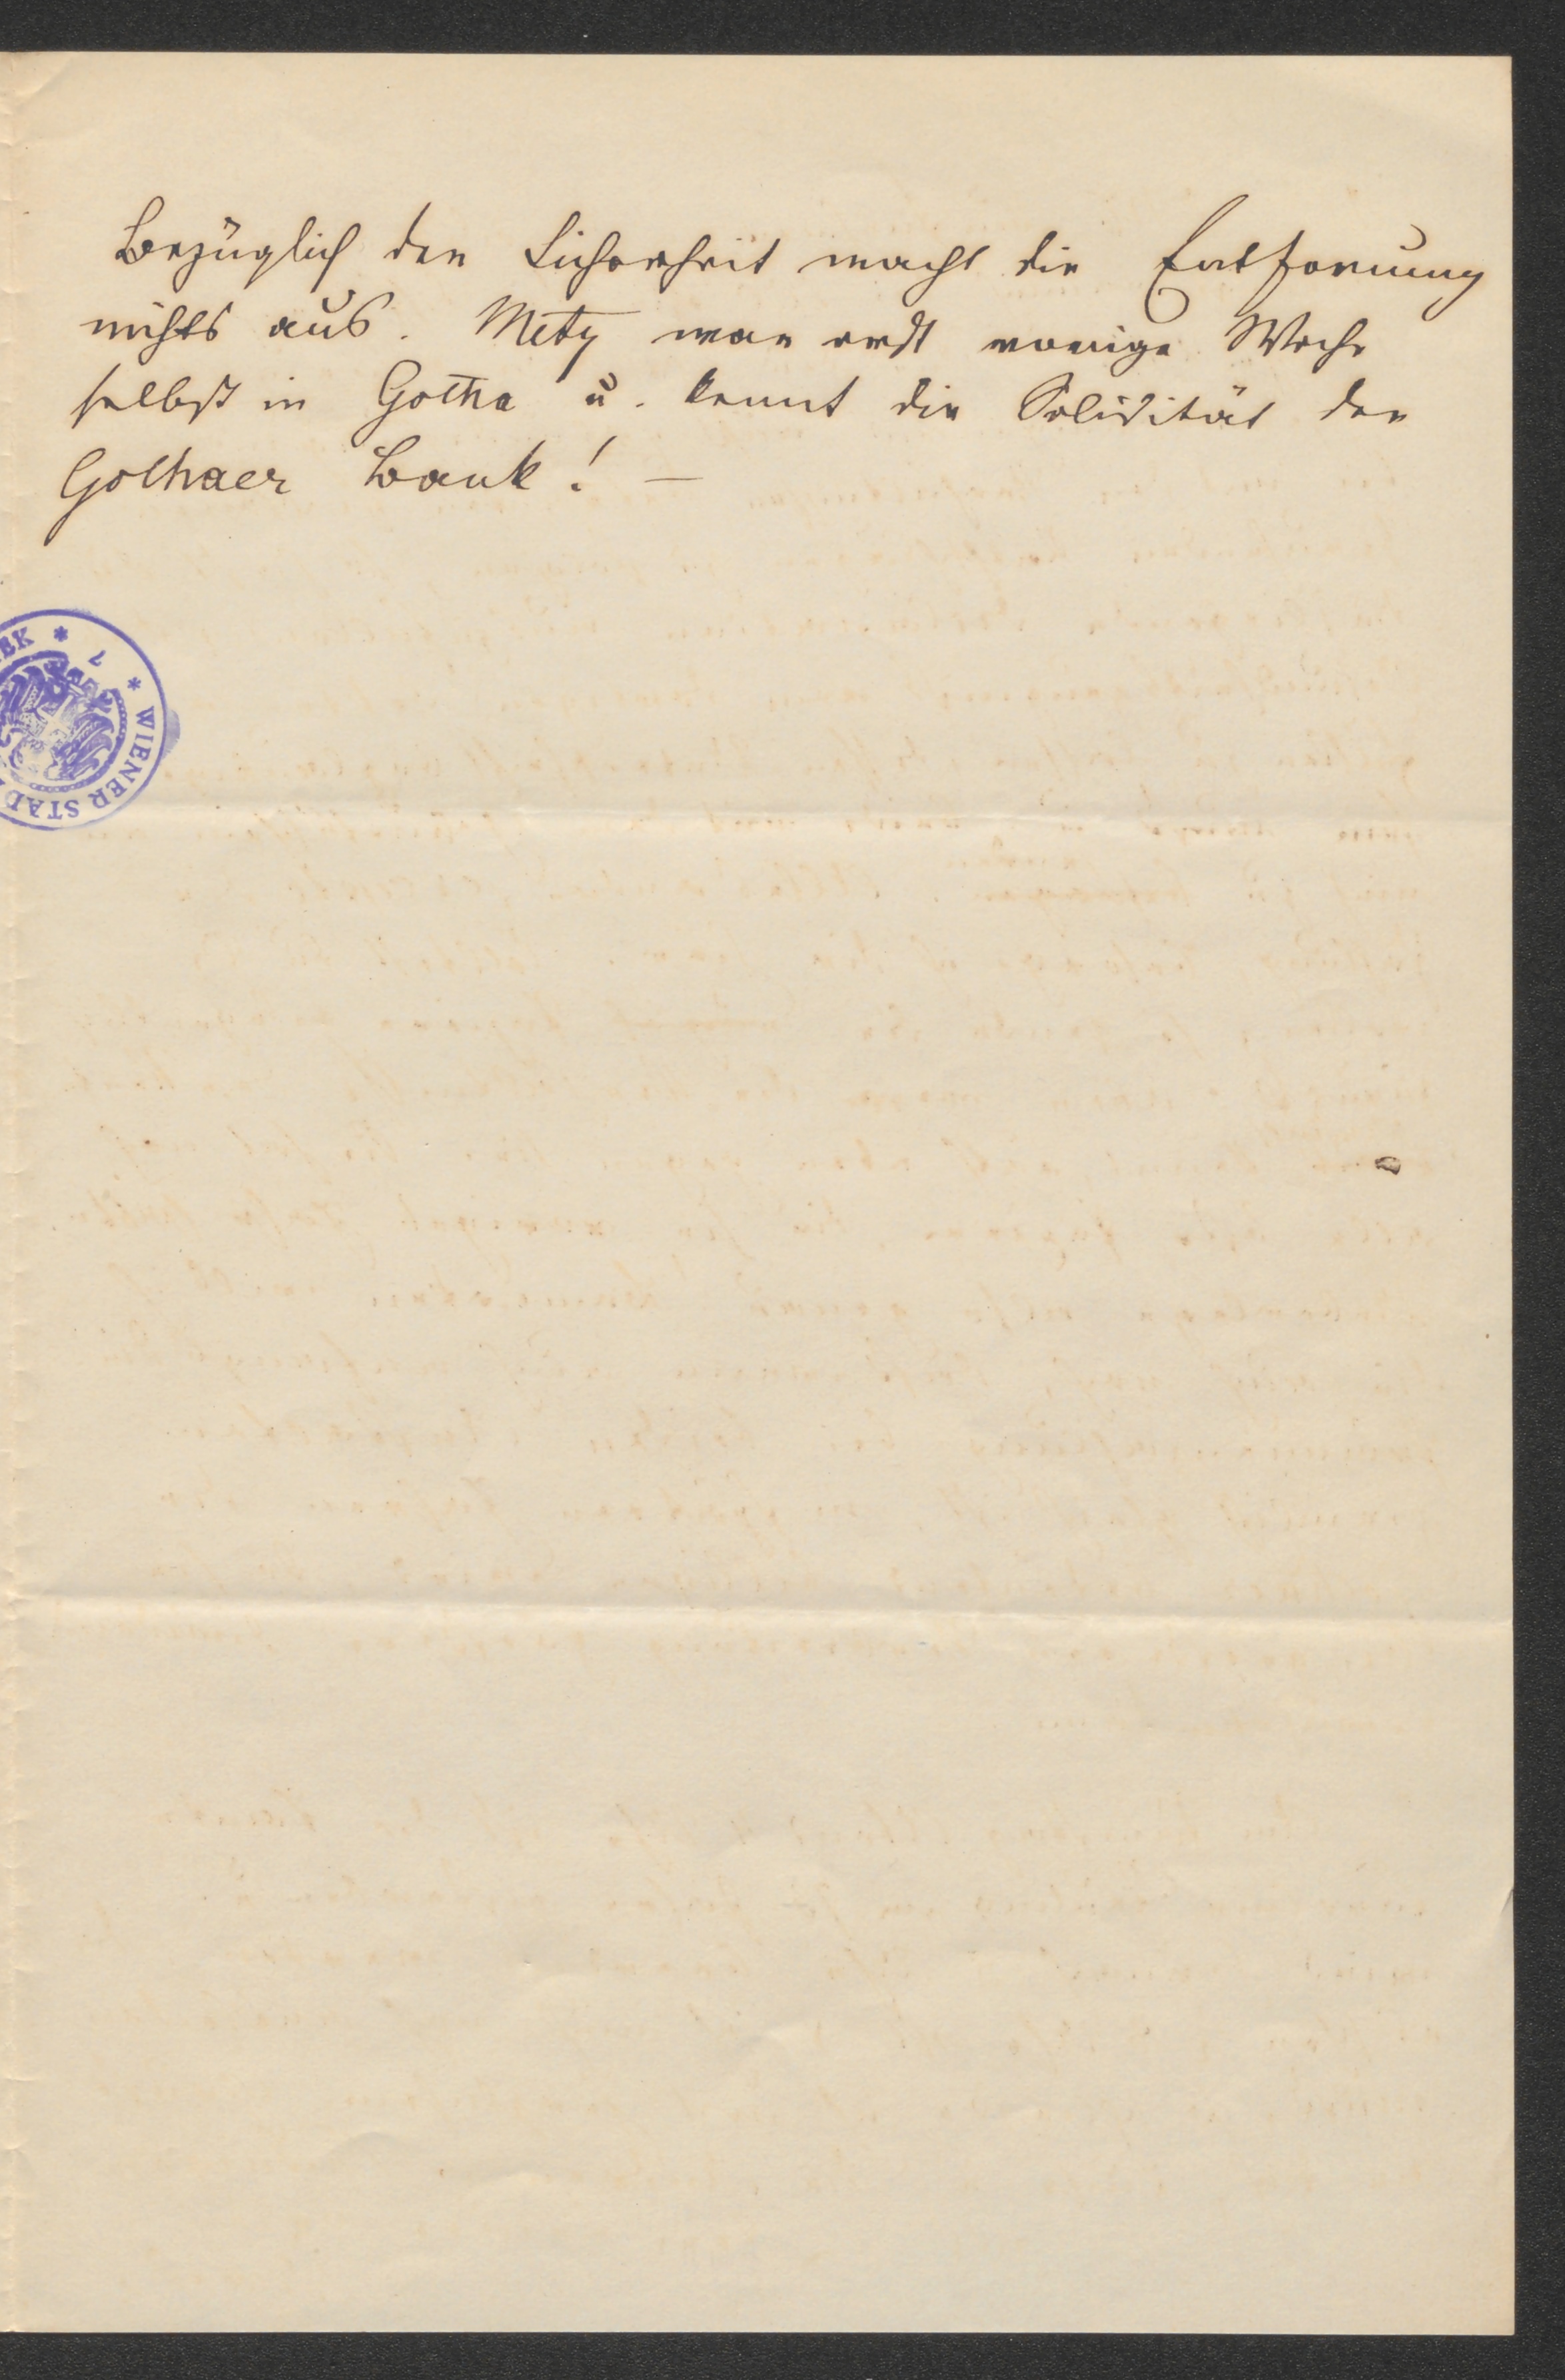 Bezüglich der Sicherheit macht die Entfernung
nichts aus. Metz war erst vorige Woche
selbst in Gotha u. kennt die Solidität der
Gothaer Bank! —
WIENER STAD
EK